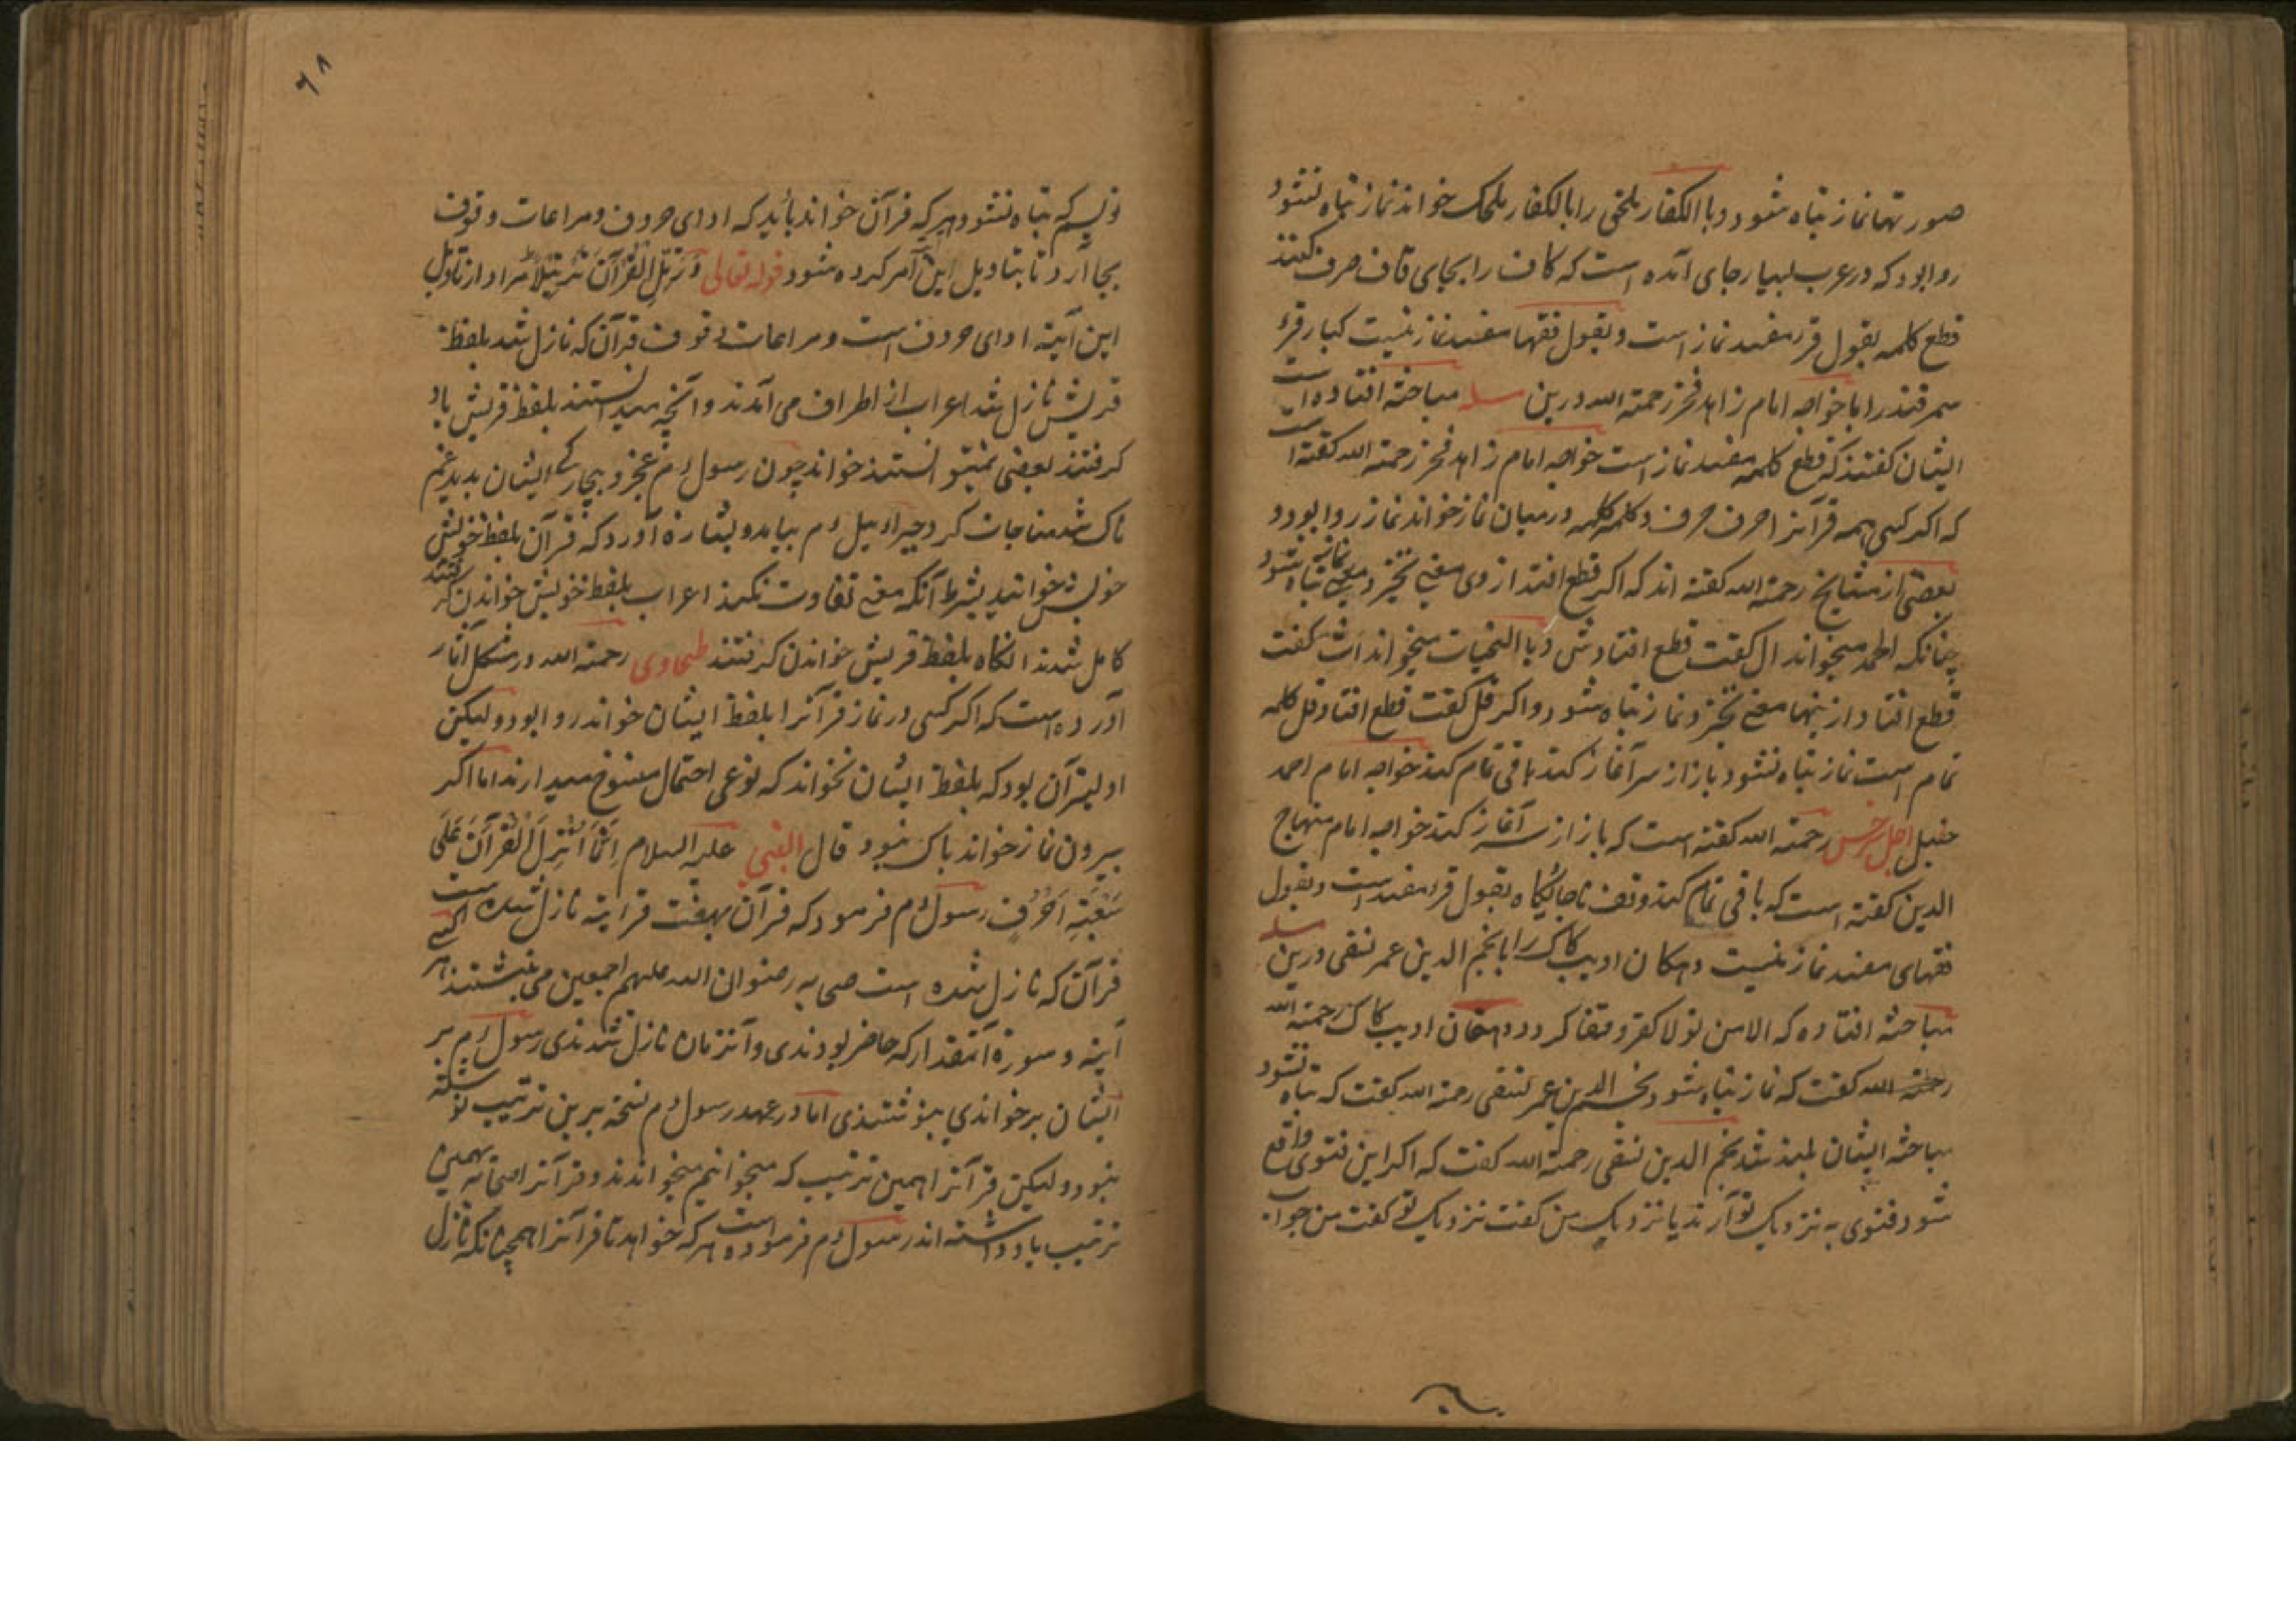 صورتها نماز تباه شود و با الکفار ملحق را بالکفار ملحک خواند نماز تباه نشود
روا بود که در عرب بسیار جای آمده است که کاف را بجای قاف صرف کنند
قطع کلمه بقول قرا مفسد نماز است و بقول فقها مفسد نماز نیست کبار قرء
سمرقند را با خواجه امام زاهد فخر رحمته الله درین مسله مباحثه افتاده است
ایشان کفتند که قطع کلمه مفسد نماز است خواجه امام زاهد فخر رحمته الله کفته است
که اکر کسی همه قرآنرا حرف حرف و کلمه کلمه در میان نماز خواند نماز روا بود و
بعضی از مشایخ رحمته الله کفته اند که اکر قطع افتد از وی معنی نخیزد نماز تباه شود
چنانکه الحمد میخواند ال کفت قطع افتادش و یا التحیات میخواند ات کفت
قطع افتاد ازینها معنی نخیزد نماز تباه شود و اکر قل کفت قطع افتاد قل کلمه
تمام است نماز تباه نشود باز از سر آغاز کند باقی تمام کند خواجه امام احمد
حنبل اجل سرخس رحمته الله کفته است که باز از سر آغاز کند خواجه امام منهاج
الدین کفته است که باقی تمام کند وقف ناجایکاه بقول قرا مفسد است و بقول
فقهای مفسد نماز نیست دهکان ادیب کاک را با نجم الدین عمر نسفی درین مسله
مباحثه افتاده که الا من تولا کفر وقفا کرد دهقان ادیب کاک رحمته الله
رحمته الله کفت که نماز تباه شود نجم الدین عمر نسفی رحمته الله کفت که تباه نشود
مباحثه ایشان بلند شد نجم الدین نسفی رحمته الله کفت که اکر این فتوی واقع
شود فتوی به نزدیک تو آرند یا نزدیک من کفت نزدیک تو کفت من جواب
۶۸
نویسم که تباه نشود هر که قرآن خواند باید که ادای حروف و مراعات وقوف
بجا آرد تا بتاویل این امر کرده شود قوله تعالی وَرَتِّلِ الْقُرْآنَ تَرْتِیلًا مراد از تاویل
این آیته ادای حروف است و مراعات وقوف قرآن که نازل شد بلفظ
قریش نازل شد اعراب از اطراف می آمدند و آنچه میدانستند بلفظ قریش یاد
کرفتند بعضی نمیتوانستند خواند چون رسول ءم عجز و بیچارکی ایشان بدید غم
ناک شد مناجات کرد جبرائیل ءم بیامد و بشارة آورد که قرآن بلفظ خویش
خویش خوانید بشرط آنکه معنی تفاوت نکند اعراب بلفظ خویش خواندن کرفتند
کامل شدند انکاه بلفظ قریش خواندن کرفتند طحاوی رحمته الله در مشکل آثار
آورده است که اکر کسی در نماز قرآنرا بلفظ ایشان خواند روا بود و لیکن
اولیتر آن بود که بلفظ ایشان نخواند که نوعی احتمال منسوخ میدارند اما اکر
بیرون نماز خواند باک نبود قال النبی علیه السلام اِنَّمَا اُنْزِلَ الْقُرْآنَ عَلَی
سَبْعَةِ اَحْرُفٍ رسول ءم فرمود که قرآن بهفت قرایته نازل شده است
قرآن که نازل شده است صحابه رضوان الله علیهم اجمعین می نبشتند هر
آیته و سورة آنمقدار که حاضر بودندی و آنزمان نازل شدندی رسول ءم بر
ایشان برخواندی بنوشتندی اما در عهد رسول ءم نسخه برین ترتیب نوشته
نبود و لیکن قرآنرا همین ترتیب که میخوانیم میخواندند و قرآنرا صحابه بهمین
ترتیب یاد داشته اند رسول ءم فرموده است هر که خواهد تا قرآنرا همچنانکه نازل